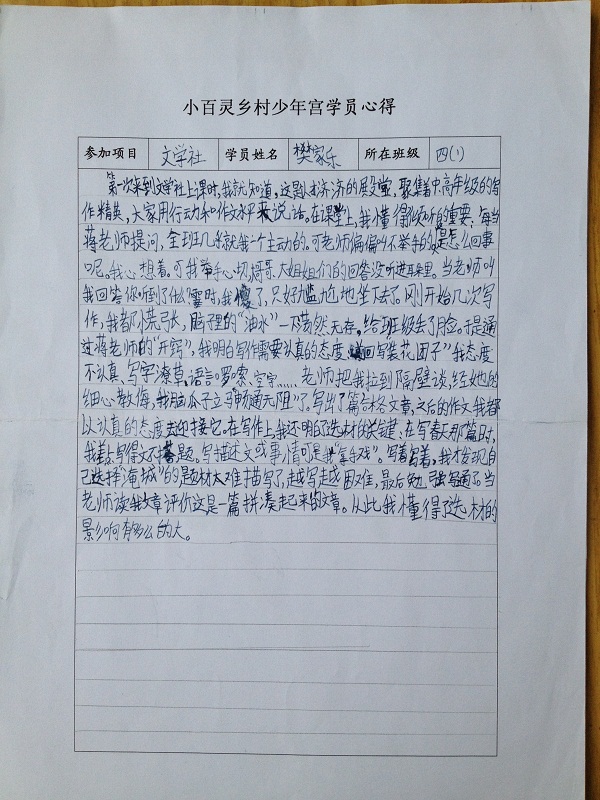 小百灵乡村少年宫学员心得
参加项目 文学社 学员姓名 樊家乐 所在班级 四(1)
第一次来到文学社上课时,我就知道,这是人才济济的殿堂,聚集着中高年级的写
作精英,大家用行动和作文水平来说话。在课堂上,我懂得倾听的重要、每当
蒋老师提问,全班几乎就我一个主动的。可老师偏偏叫不举手的是怎么回事
呢。我心想着。可我举手心切,哥哥、大姐姐们的回答没听进耳朵里。当老师叫
我回答你听到了什么?霎时,我傻了,只好尴尬地坐下去了。刚开始几次写
作,我都慌张,脑子里的“油水”一下荡然无存,给班级丢了脸。于是通
过蒋老师的“开窍”,我明白写作需要认真的态度、回写“菜花团子”我态度
不认真、写字潦草、语言罗索、空字…… 老师把我拉到隔壁谈,经她的
细心教悔,我脑瓜子立马“畅通无阻”了。写出了篇合格文章,之后的作文我都
以认真的态度去迎接它。在写作上,我还明白了选材的关键、在写春天那篇日时,
我差点写得文不搭题。写描述文或事情可是我“拿手戏”。写着写着,我才发现自
己选择“淹城”的题材太难描写了,越写越困难,最后勉强写通了。当
老师读我文章评价这是一篇拼凑起来的文章。从此我懂得了选材的
影响有多么的大。